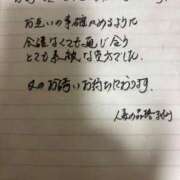 お互いの手確かめるように
会話なくても通じ合り
とても素敵な貴方でした。
又のお誘いお待ちしております。
人妻の品格